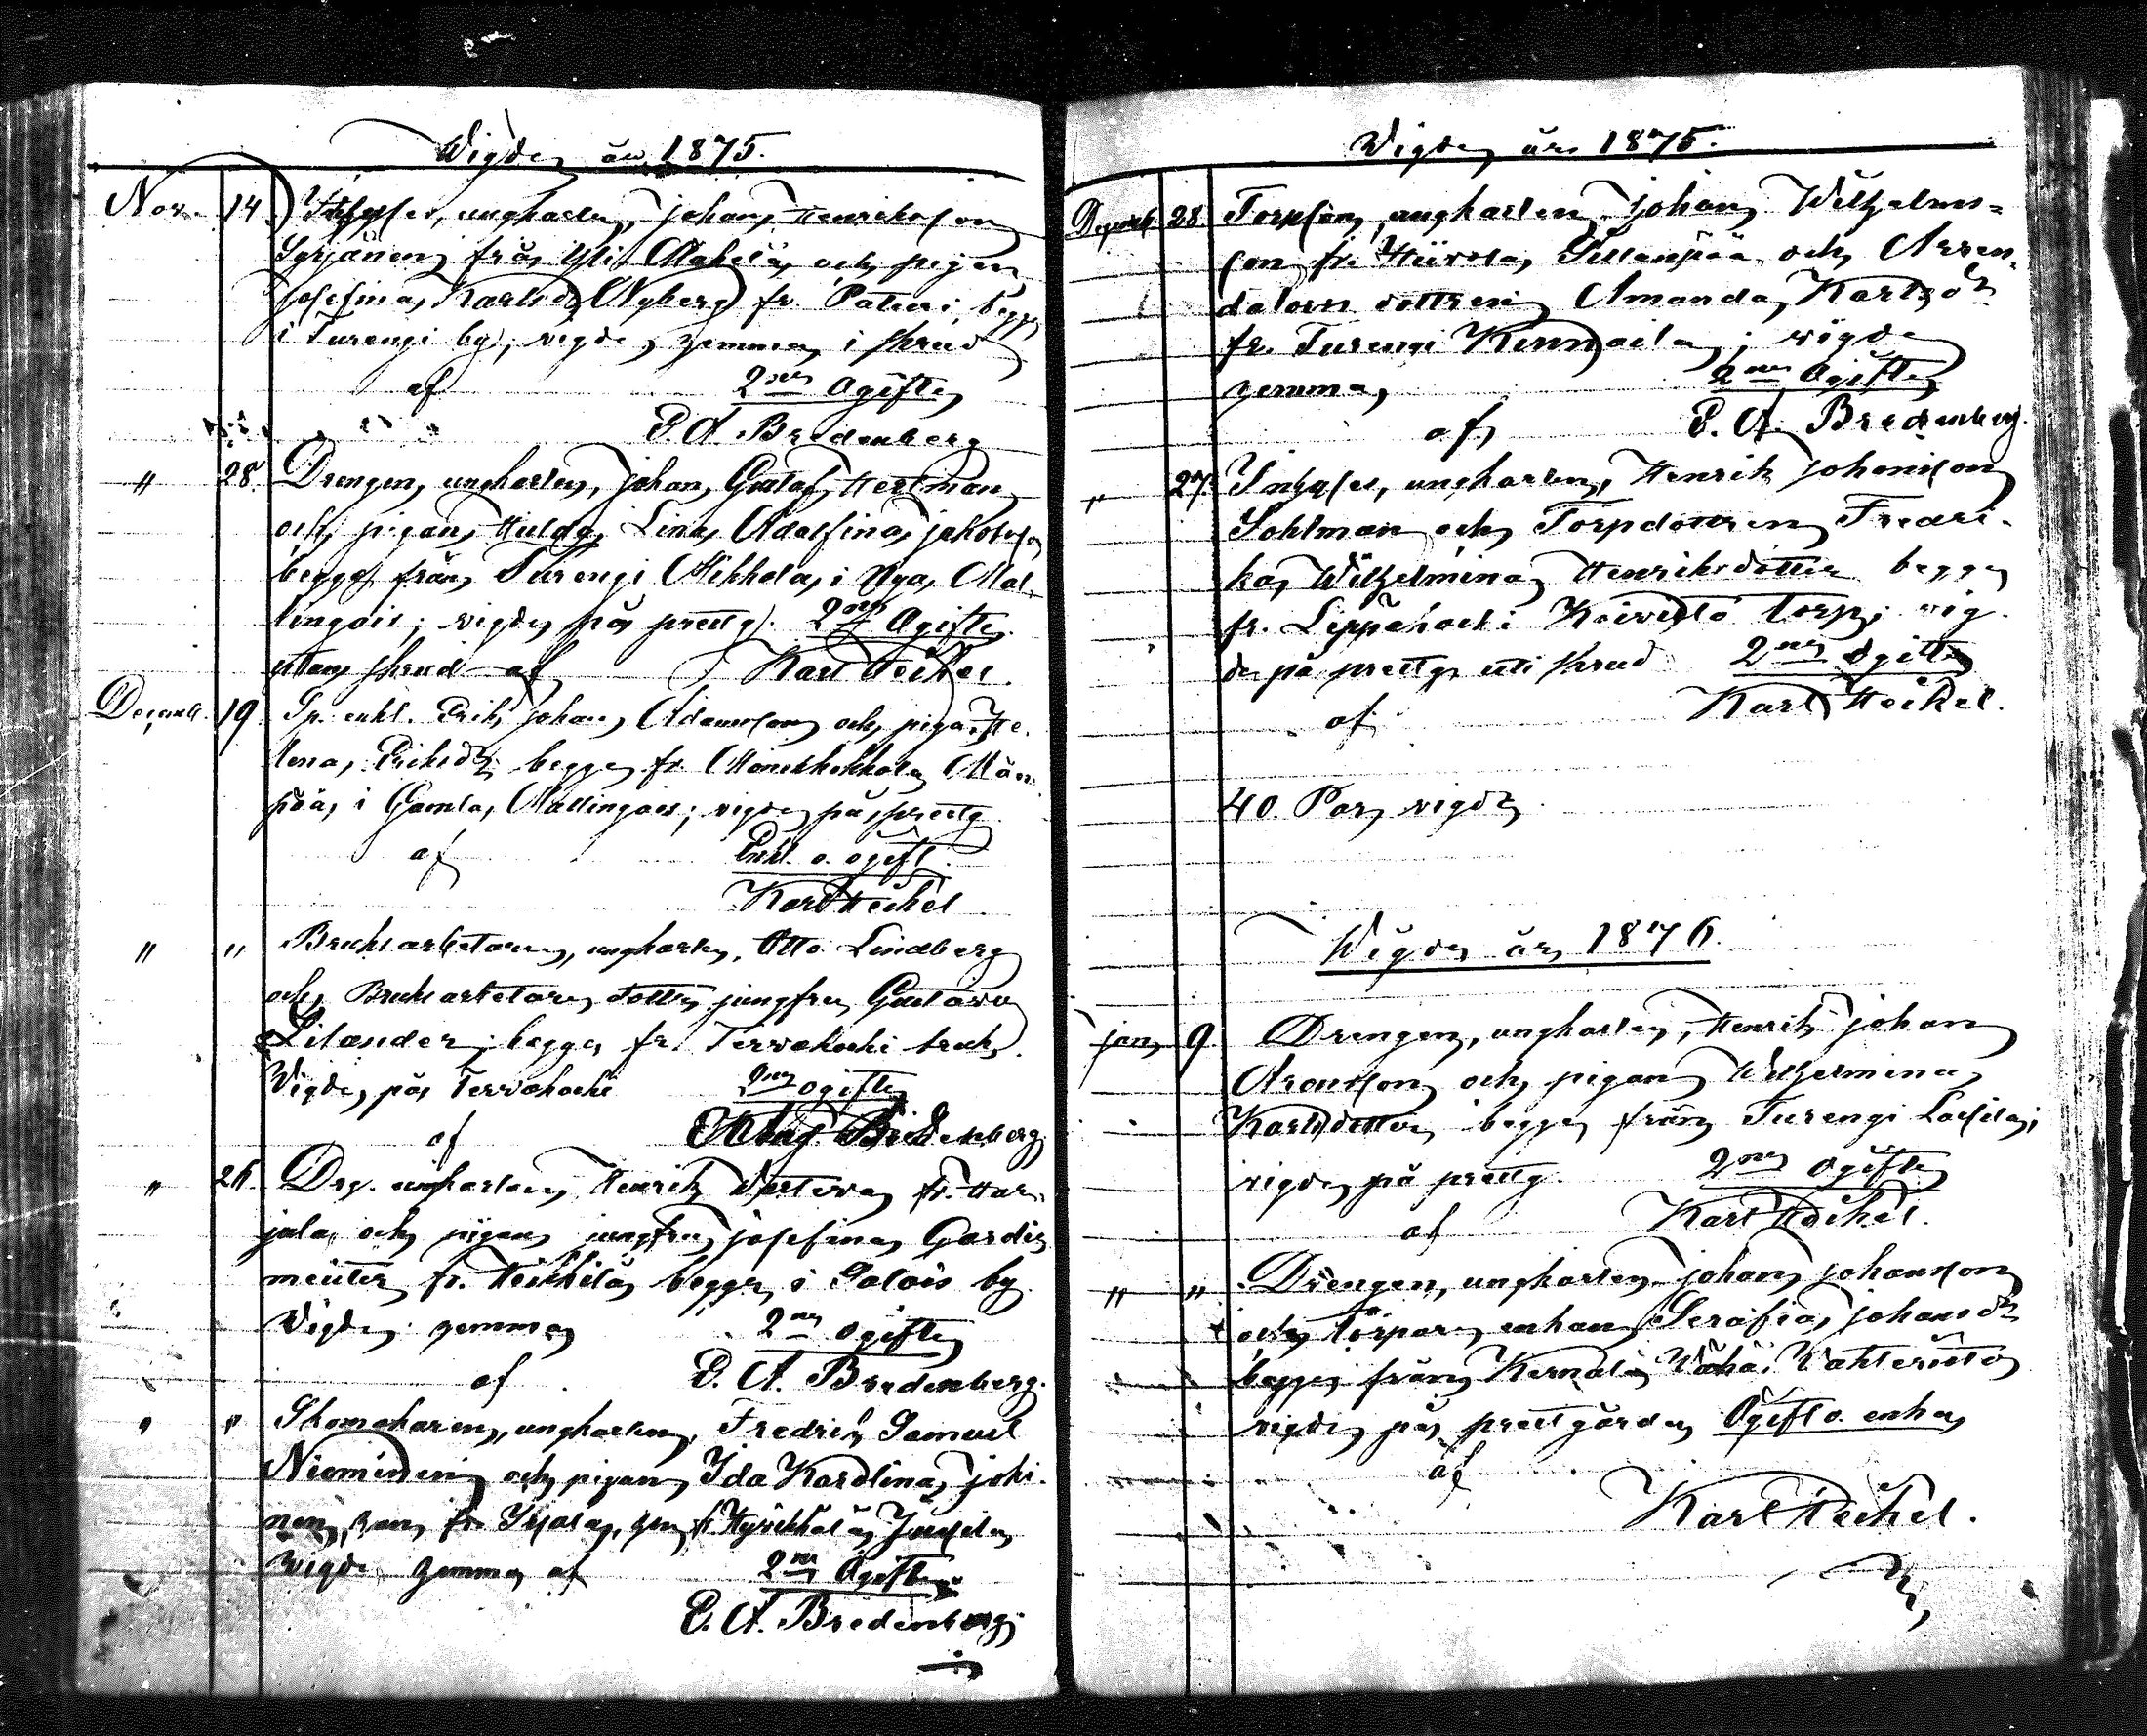 Wigde år 1875.
Nov. 14. ungkarlen, Johan Henriksson
Syrjänen från Yli Mäkelä och pigan
Josefina Karlsd. Nyberg fr. Paturi, begge
i Turengi by; vigde hemma i skrud
af 2ne Ogifte
P. A. Bredenberg
" 28. Drengen, ungkarlen, Johan Gustaf Hertman
och pigan Hulda Lina Adolfina
begge från Turengi Mikkola, i Nya Mal-
lingais; vigde på prestg. 2ne Ogifte
utan skrud af Karl Heikel.
Decemb. 19. Sp. enkl. Erik Johan Adamsson och pigan He-
lena Eriksdr begge fr.
i Gamla Mallingais; vigde på prestg
af Enkl. o. ogift.
Karl Heikel
" " Bruksarbetaren, ungkarlen, Otto Lindberg
och Bruksarbetare dottren jungfru Gustava
Silander, begge fr. Terwakoski bruk.
Vigde på Terwakoski 2ne ogifte
af Bredenberg
" 26. Drg. ungkarlen Henrik fr. Har-
jala och pigan jungfru Josefina Gardis
meister fr. Heikkilä begge i Salois by.
Vigde hemma 2ne ogifte
af P. A. Bredenberg.
" " Skomakaren, ungkarlen, Fredrik Samuel
Nieminen och pigan Ida Karolina Joki-
nen, han fr. hon fr. Hyvikkälä Jussila
Vigde hemma af 2ne Ogifte
P. A. Bredenberg
Wigde år 1875.
Decemb. 28. Torpson, ungkarlen, Johan Wilhelms-
son fr. Hiivola, Sillanpää och Arren-
datorn dottren Amanda Karlsdr
fr. Turengi vigde
hemma, 2ne Ogifte
af P. A. Bredenberg.
" 27. Inhyses, ungkarlen, Henrik Johansson
Sohlman och Torpdottren Fredri-
ka Wilhelmina Henriksdotter begge
fr. Leppäkoski Koivisto torp; vig-
de på prestg. uti skrud 2ne Ogifte
af Karl Heikel.
40. Par vigde
Wigde år 1876.
Jan 9. Drengen, ungkarlen, Henrik Johan
Aronsson och pigan Wilhelmina
Karlsdotter, begge från Turengi Lassila;
vigde på prestg. 2ne Ogifte
af Karl Heikel.
" " Drengen, ungkarlen, Johan Johansson
och torpare enkan Serafia Johansdr
begge från Kernalä Wähä Wahteristo
vigde på prestgården Ogift o. enka
af
Karl Heikel.